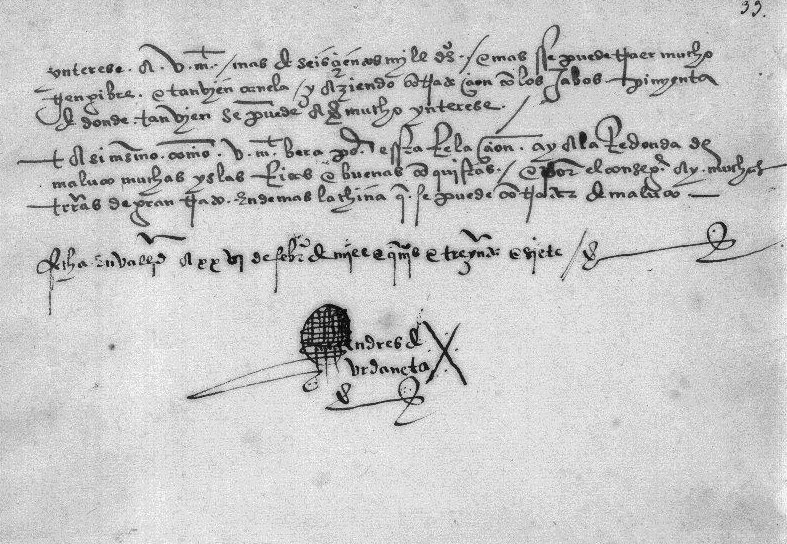 33.
ynterese. A. V. mt. / mas de seisçientos myll ds. / e mas se puede traer mucho
jengibre. e tanvjen canela / y aziendo contrataçion con los Jabos pimyenta
de donde tanvjen se puede aver mucho ynterese /
t Asi mismo. como. V. mt. vera por esta Relaçion. ay A la Redonda de
maluco muchas yslas Ricas e buenas de conquistar. / e por el consego. Ay. muchas
trras de gran trato. Endemas la china q. se puede contratar de maluco —
fecha En vallid A xx vj de febro de mjll e qujos e treynta e siete /
Andres de
Vrdaneta